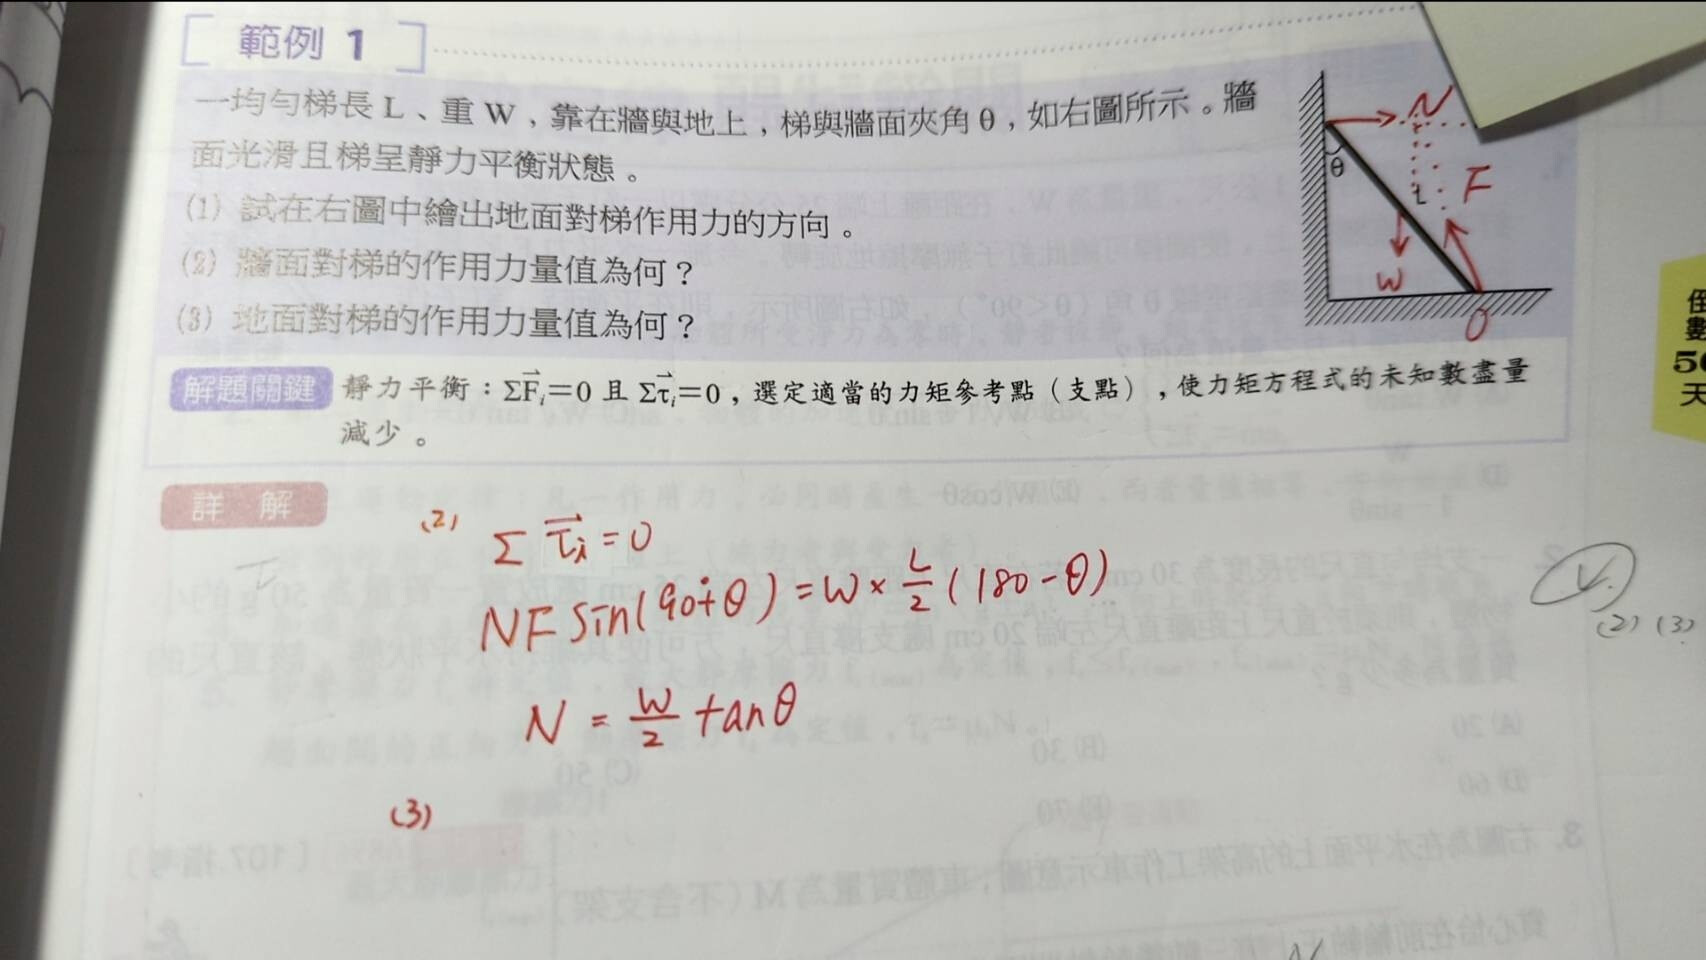 範例 1
一均勻梯長 L、重 W,靠在牆與地上,梯與牆面夾角 θ,如右圖所示。牆
面光滑且梯呈靜力平衡狀態。
(1) 試在右圖中繪出地面對梯作用力的方向。
(2) 牆面對梯的作用力量值為何?
(3) 地面對梯的作用力量值為何?
N
θ
L
F
W
O
解題關鍵 靜力平衡:ΣF⃗ᵢ=0 且 Στ⃗ᵢ=0,選定適當的力矩參考點(支點),使力矩方程式的未知數盡量
減少。
詳解
(2) Σ τ⃗ᵢ = 0
NF sin(90+θ) = W × L/2 (180-θ)
N = W/2 tanθ
(3)
(2) (3)
倒
數
50
天